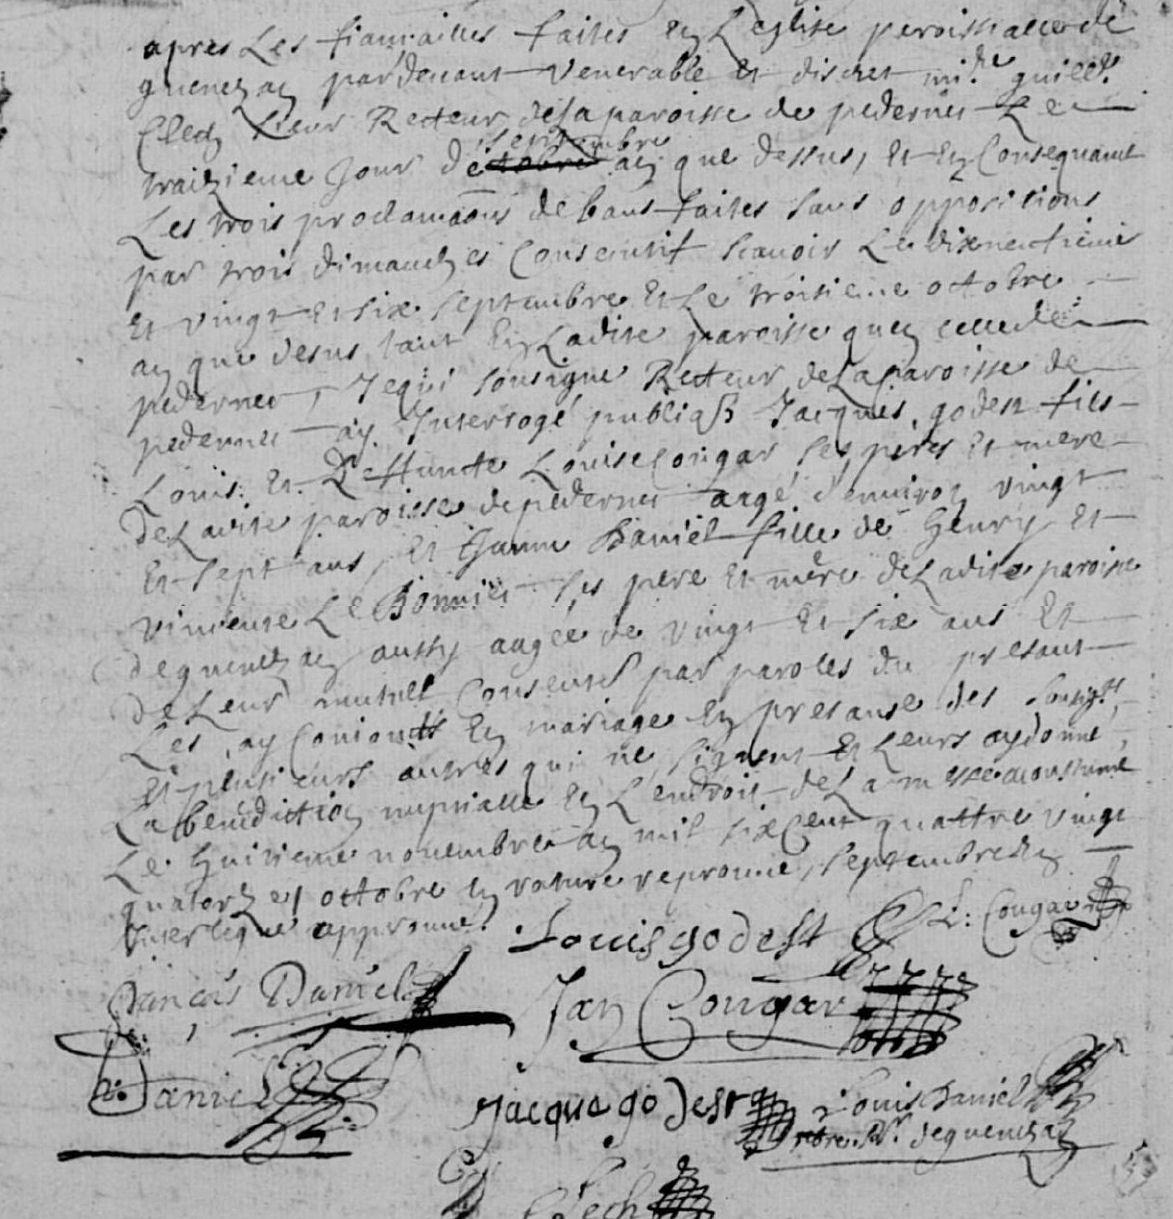 apres Les fiancailles faites en L'eglise paroissialle de
guenezan pardevant venerable et discret mi.re guill.e
Clech sieur Recteur de la paroisse de pedernec Le
traizieme Jour de octobre septembre an que dessus, et en Consequance
Les trois proclamaons de bans faites sans oppositions
par trois dimanches Consecutif scavoir Le dixneufieme
et vingt et six septembre et Le troisieme octobre
an que desus tant en Ladite paroisse quen celle de
pedernec, Je qui sousigne Recteur de La paroisse de
pedernec ay Interrogé Jacques godest fils
Louis et deffuncte Louise Congar ses peres et mere
de Ladite paroisse de pedernec aagé d'environ vingt
et sept ans, et Janne Daniel fille de henry et
vincente Le Bonniec ses pere et mere de Ladite paroisse
de guenezan aussy aagée de vingt et six ans et
de Leur mutuel Consentes par paroles du presant
Les ay Conioints en mariage en presance des sousig.ts
et plusieurs autres qui ne signent et Leurs ay donné
La benediction nuptialle en L'endroit de La messe acoustumé
Le huitieme novembre an mil six Cent quattre vingt
quatorze octobre en rature reprouvé, septembre en
Interligne approuvé
Louis godest L: Congar
francois Daniel Jan Congar
Daniel Jacque godest Louis Daniel
de guenezan
Clech